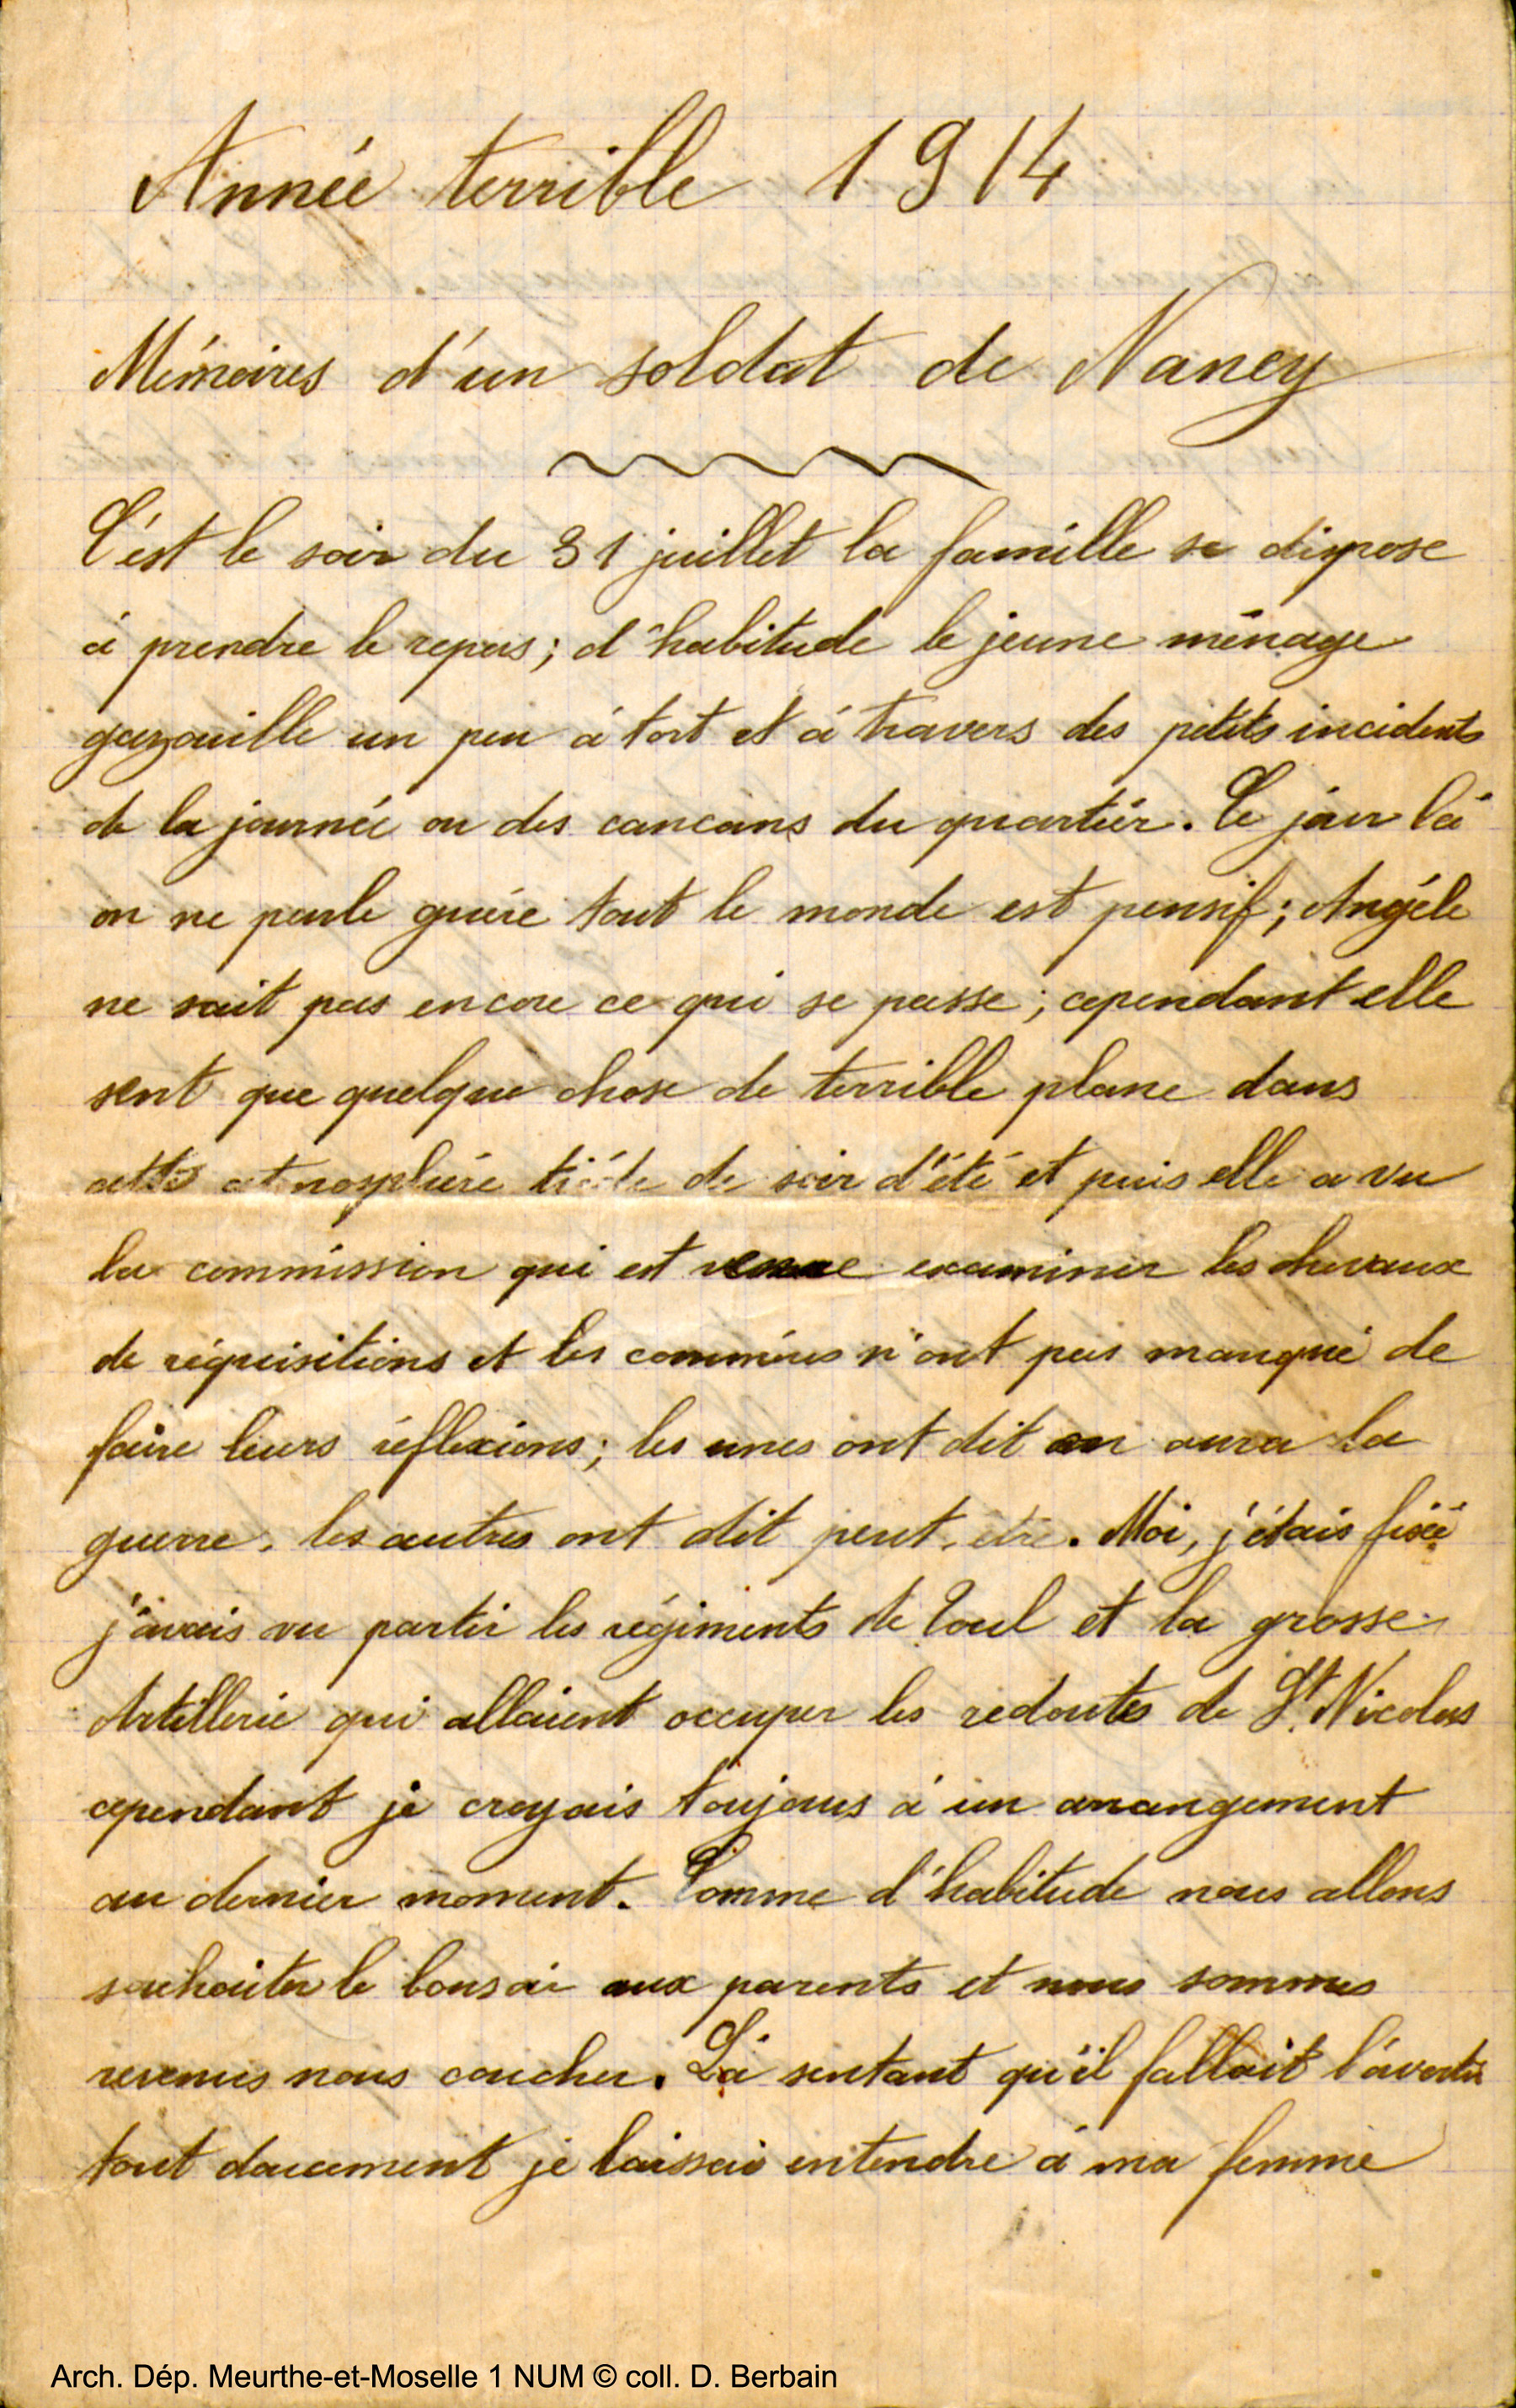 Année terrible 1914
Mémoires d'un soldat de Nancy
C'est le soir du 31 juillet la famille se dispose
à prendre le repas ; d'habitude le jeune ménage
gazouille un peu à tort et à travers des petits incidents
de la journée ou des cancans du quartier. Ce jour là
on ne parle guère tout le monde est pensif ; Angéle
ne sait pas encore ce qui se passe ; cependant elle
sent que quelque chose de terrible plane dans
cette atmosphère tiède de soir d'été et puis elle a vu
la commission qui est venue examiner les chevaux
de réquisitions et les commères n'ont pas manqué de
faire leurs réflexions ; les unes ont dit on aura la
guerre, les autres ont dit peut-être. Moi, j'étais fixé
j'avais vu partir les régiments de Toul et la grosse
Artillerie qui allaient occuper les redoutes de St Nicolas
cependant je croyais toujours à un arrangement
au dernier moment. Comme d'habitude nous allons
souhaiter le bonsoir aux parents et nous sommes
revenus nous coucher. Là sentant qu'il fallait l'avertir
tout doucement je laissai entendre à ma femme
Arch. Dép. Meurthe-et-Moselle 1 NUM © coll. D. Berbain